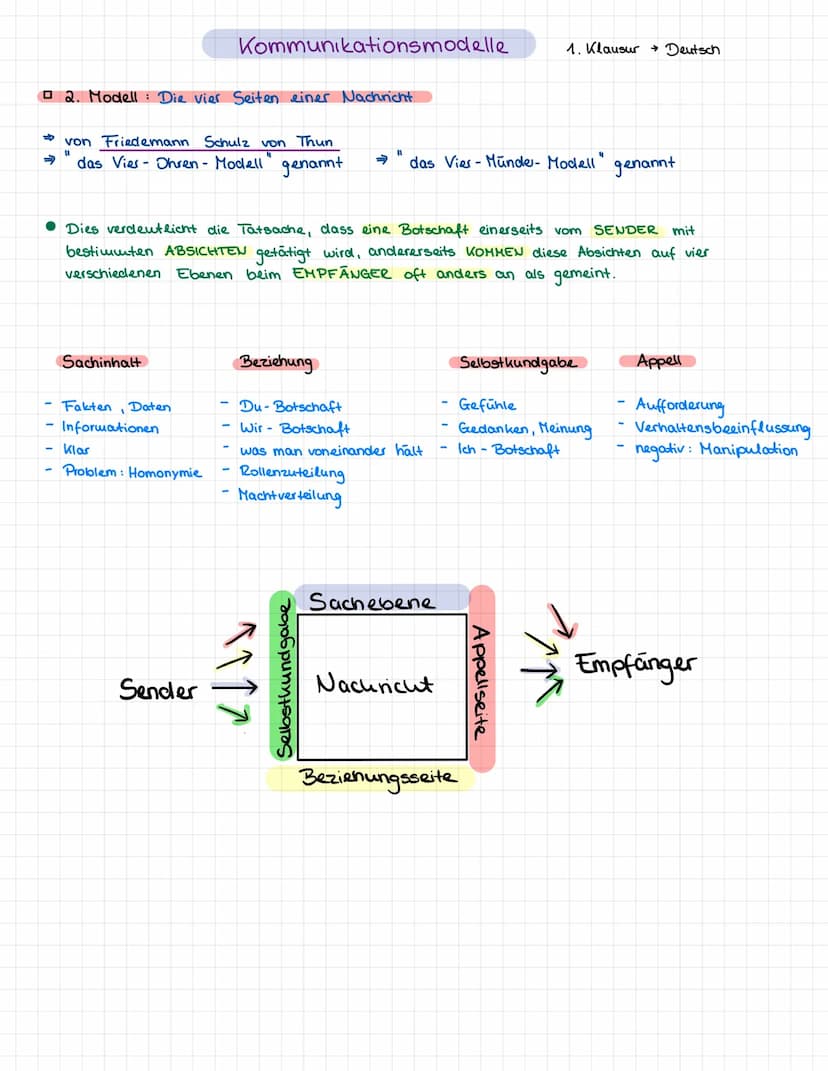 Kommunikationsmodelle
1. Klausur → Deutsch
2. Modell : Die vier Seiten einer Nachricht
⇒ von Friedemann Schulz von Thun
⇒ "das Vier-Ohren-Modell" genannt ⇒ "das Vier-Münder-Modell" genannt
• Dies verdeutlicht die Tatsache, dass eine Botschaft einerseits vom SENDER mit
bestimmten ABSICHTEN getätigt wird, andererseits KOMMEN diese Absichten auf vier
verschiedenen Ebenen beim EMPFÄNGER oft anders an als gemeint.
Sachinhalt
- Fakten, Daten
- Informationen
- Klar
- Problem: Homonymie
Beziehung
- Du-Botschaft
- Wir-Botschaft
- was man voneinander hält
- Rollenzuteilung
- Machtverteilung
Selbstkundgabe
- Gefühle
- Gedanken, Meinung
- Ich-Botschaft
Appell
- Aufforderung
- Verhaltensbeeinflussung
- negativ: Manipulation
Sender
Selbstkundgabe
Sachebene
Nachricht
Beziehungsseite
Appellseite
Empfänger